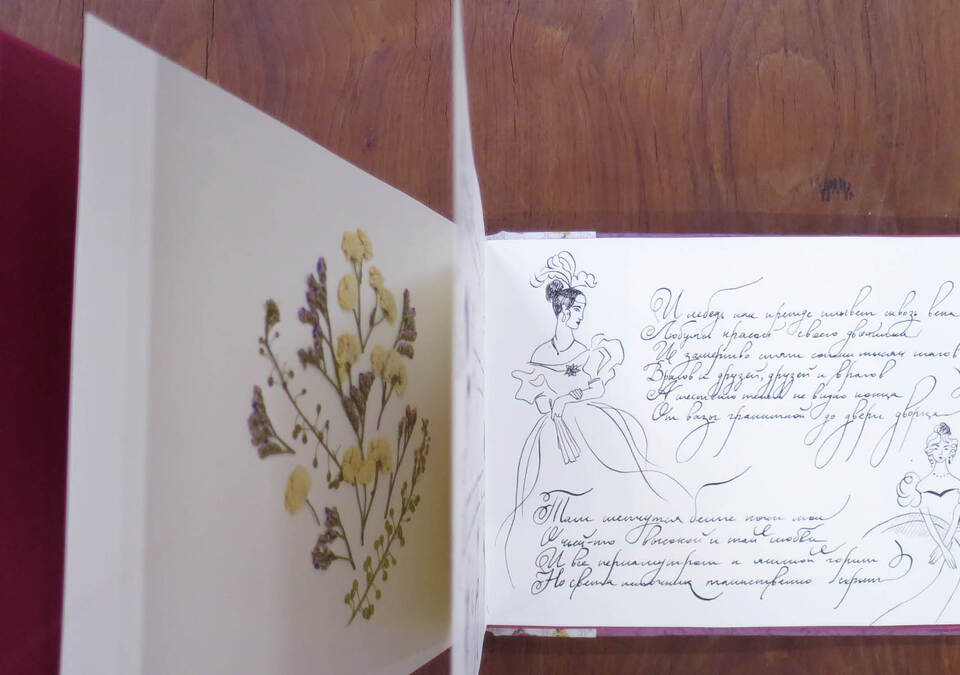 И лебедь как прежде плывет сквозь века
Любуясь красой своего двойника
И замертво спят сотни тысяч шагов
Врагов и друзей, друзей и врагов
А шествию теней не видно конца
От вазы гранитной до двери дворца
Там шепчутся белые ночи мои
О чьей-то высокой и тайной любви
И все перламутром и яшмой горит
Но света источник таинственно скрыт